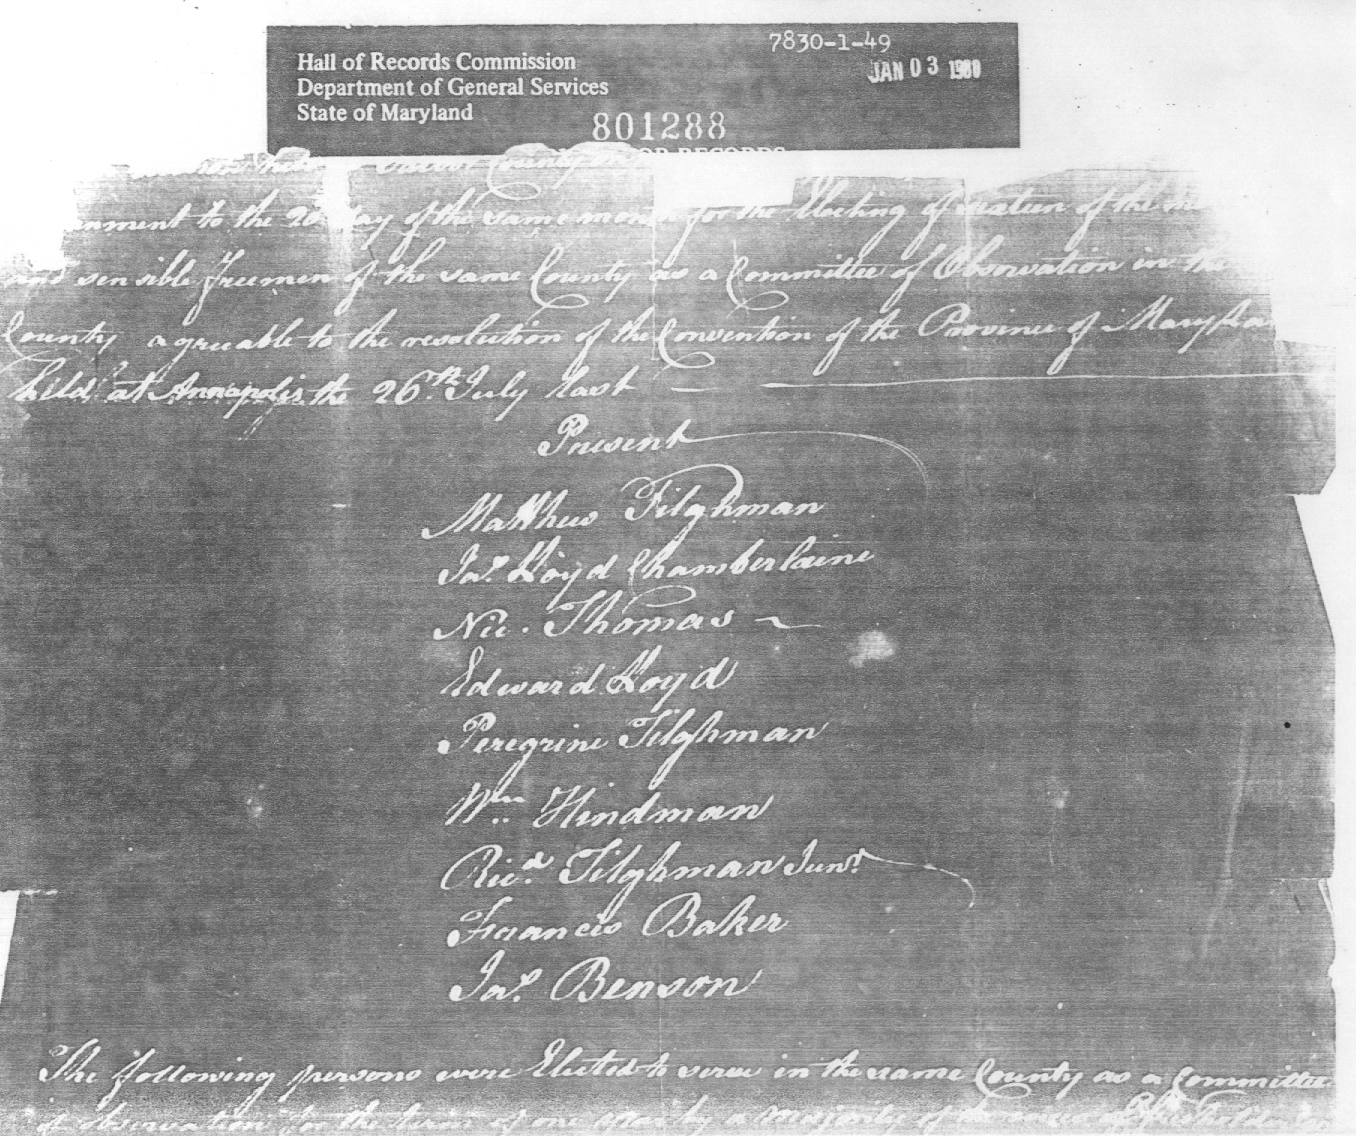 7830-1-49
Hall of Records Commission
JAN 03 1980
Department of General Services
State of Maryland
801288
County
nment to the 20 day of the same month for the Electing of of the
sensible freemen of the same County as a Committee of Observation in the
County agreeable to the resolution of the Convention of the Province of Maryla
held at Annapolis the 26th July last
Present
Matthew Tilghman
Jas. Lloyd Chamberlaine
Nic. Thomas
Edward Lloyd
Peregrine Tilghman
Wm. Hindman
Ricd. Tilghman Junr.
Francis Baker
Jas. Benson
The following persons were Elected to serve in the same County as a Committee
of observation for the term of one year by a majority of